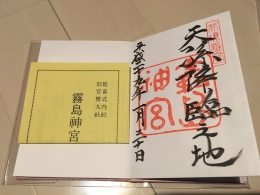 天孫降臨之地
霧島
神宮
平成二十九年一月三十日
延喜式内社
旧官幣大社
霧島神宮